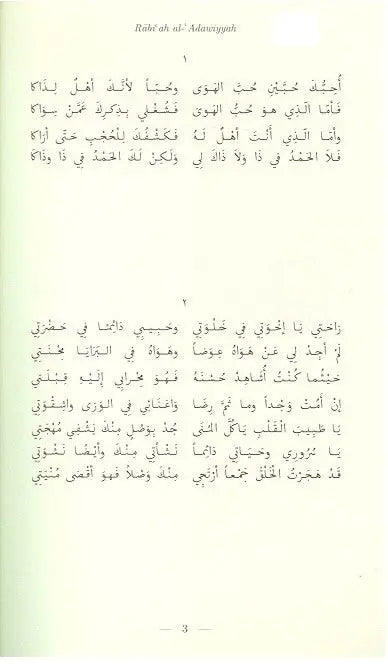 Rābiʿah al-ʿAdawiyyah
١
أُحِبُّكَ حُبَّيْنِ حُبَّ الهَوَى وحُبّاً لأَنَّكَ أَهْلٌ لِذَاكَا
فَأَمّا الَّذِي هُوَ حُبُّ الهَوَى فَشُغْلِي بِذِكْرِكَ عَمَّنْ سِوَاكَا
وأمّا الَّذِي أَنْتَ أَهْلٌ لَهُ فَكَشْفُكَ لِلْحُجْبِ حَتَّى أَرَاكَا
فَلاَ الحَمْدُ فِي ذَا وَلاَ ذَاكَ لِي وَلكِنْ لَكَ الحَمْدُ فِي ذَا وذَاكَا
٢
رَاحَتِي يَا إِخْوَتِي فِي خَلْوَتِي وحَبِيبِي دَائِمًا فِي حَضْرَتِي
لَمْ أَجِدْ لِي عَنْ هَوَاهُ عِوَضَا وهَوَاهُ فِي البَرَايَا مِحْنَتِي
حَيْثُما كُنْتُ أُشَاهِدُ حُسْنَهُ فَهُوَ مِحْرَابِي إِلَيْهِ قِبْلَتِي
إِنْ أَمُتْ وَجْداً وما ثَمَّ رِضَا وَاعَنَائِي فِي الوَرَى وَاشِقْوَتِي
يَا طَبِيبَ القَلْبِ يَاكُلَّ المُنَى جُدْ بِوَصْلٍ مِنْكَ يَشْفِي مُهْجَتِي
يَا سُرُورِي وحَيَاتِي دَائِماً نَشْأَتِي مِنْكَ وأَيْضًا نَشْوَتِي
قَدْ هَجَرْتُ الخَلْقَ جَمْعاً أَرْتَجِي مِنْكَ وَصْلاً فَهوَ أَقْصَى مُنْيَتِي
— 3 —